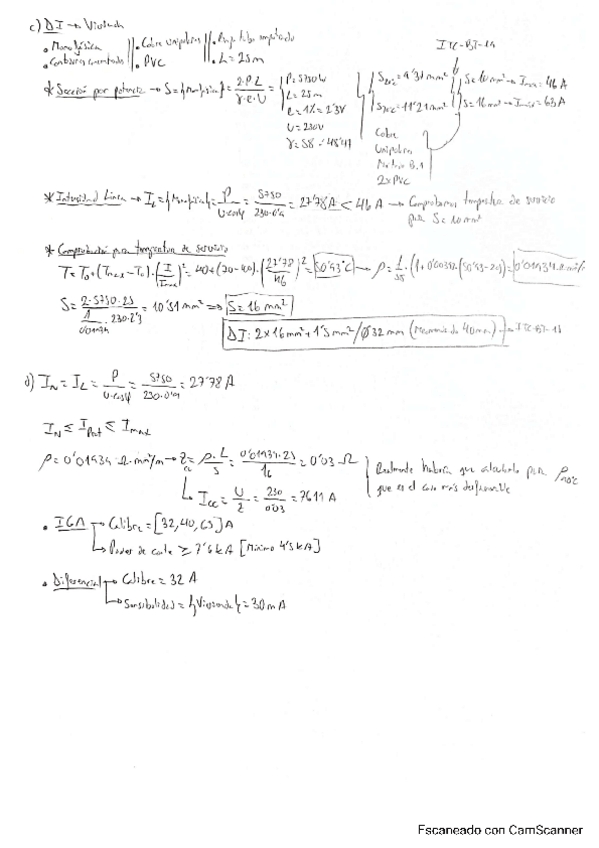 c) DI → Vivienda
• Monofásica
• Cobre unipolares
• PVC
• L = 25m
ITC-BT-19
* Sección por potencia → S = {Monofásica} = 2·P·L / γ·e·U =
P = 5750 W
L = 25 m
e = 1% = 2'3V
U = 230V
γ = 58 - 48'47
S = 9'31 mm²
S = 11'21 mm²
S = 10 mm² → Imax = 46 A
S = 16 mm² → Imax = 63 A
Cobre
Unipolares
B.1
2xPVC
* Intensidad Línea → IL = {Monofásica} = P / U·cosφ = 5750 / 230·0'9 = 27'78 A < 46 A → Comprobamos temperatura de servicio
por S = 10 mm²
* Comprobación por temperatura de servicio
T = T0 + (Tmax - T0)·(I / Imax)² = 40 + (70 - 40)·(27'78 / 46)² = 50'93°C → ρ = 1/58·(1 + 0'00392·(50'93 - 20)) = 0'01934 Ω·mm²/m
S = 2·5750·25 / 1/0'01934·230·2'3 = 10'51 mm² ⇒ S = 16 mm²
DI: 2x16mm² + 1'5mm² / Ø32 mm (Mínimo de 40 mm) → ITC-BT-15
d) IN = IL = P / U·cosφ = 5750 / 230·0'9 = 27'78 A
IN ≤ I ≤ Imax
ρ = 0'01934 Ω·mm²/m → Z = ρ·L / S = 0'01934·25 / 16 = 0'03 Ω
Realmente habría que calcularlo para ρ20°C
que es el caso más desfavorable
Icc = U / Z = 230 / 0'03 = 7611 A
• IGA → Calibre = [32, 40, 63] A
→ Poder de corte ≥ 7'6 kA [Mínimo 4'5 kA]
• Diferencial → Calibre = 32 A
→ Sensibilidad = {Vivienda} = 30 mA
Escaneado con CamScanner